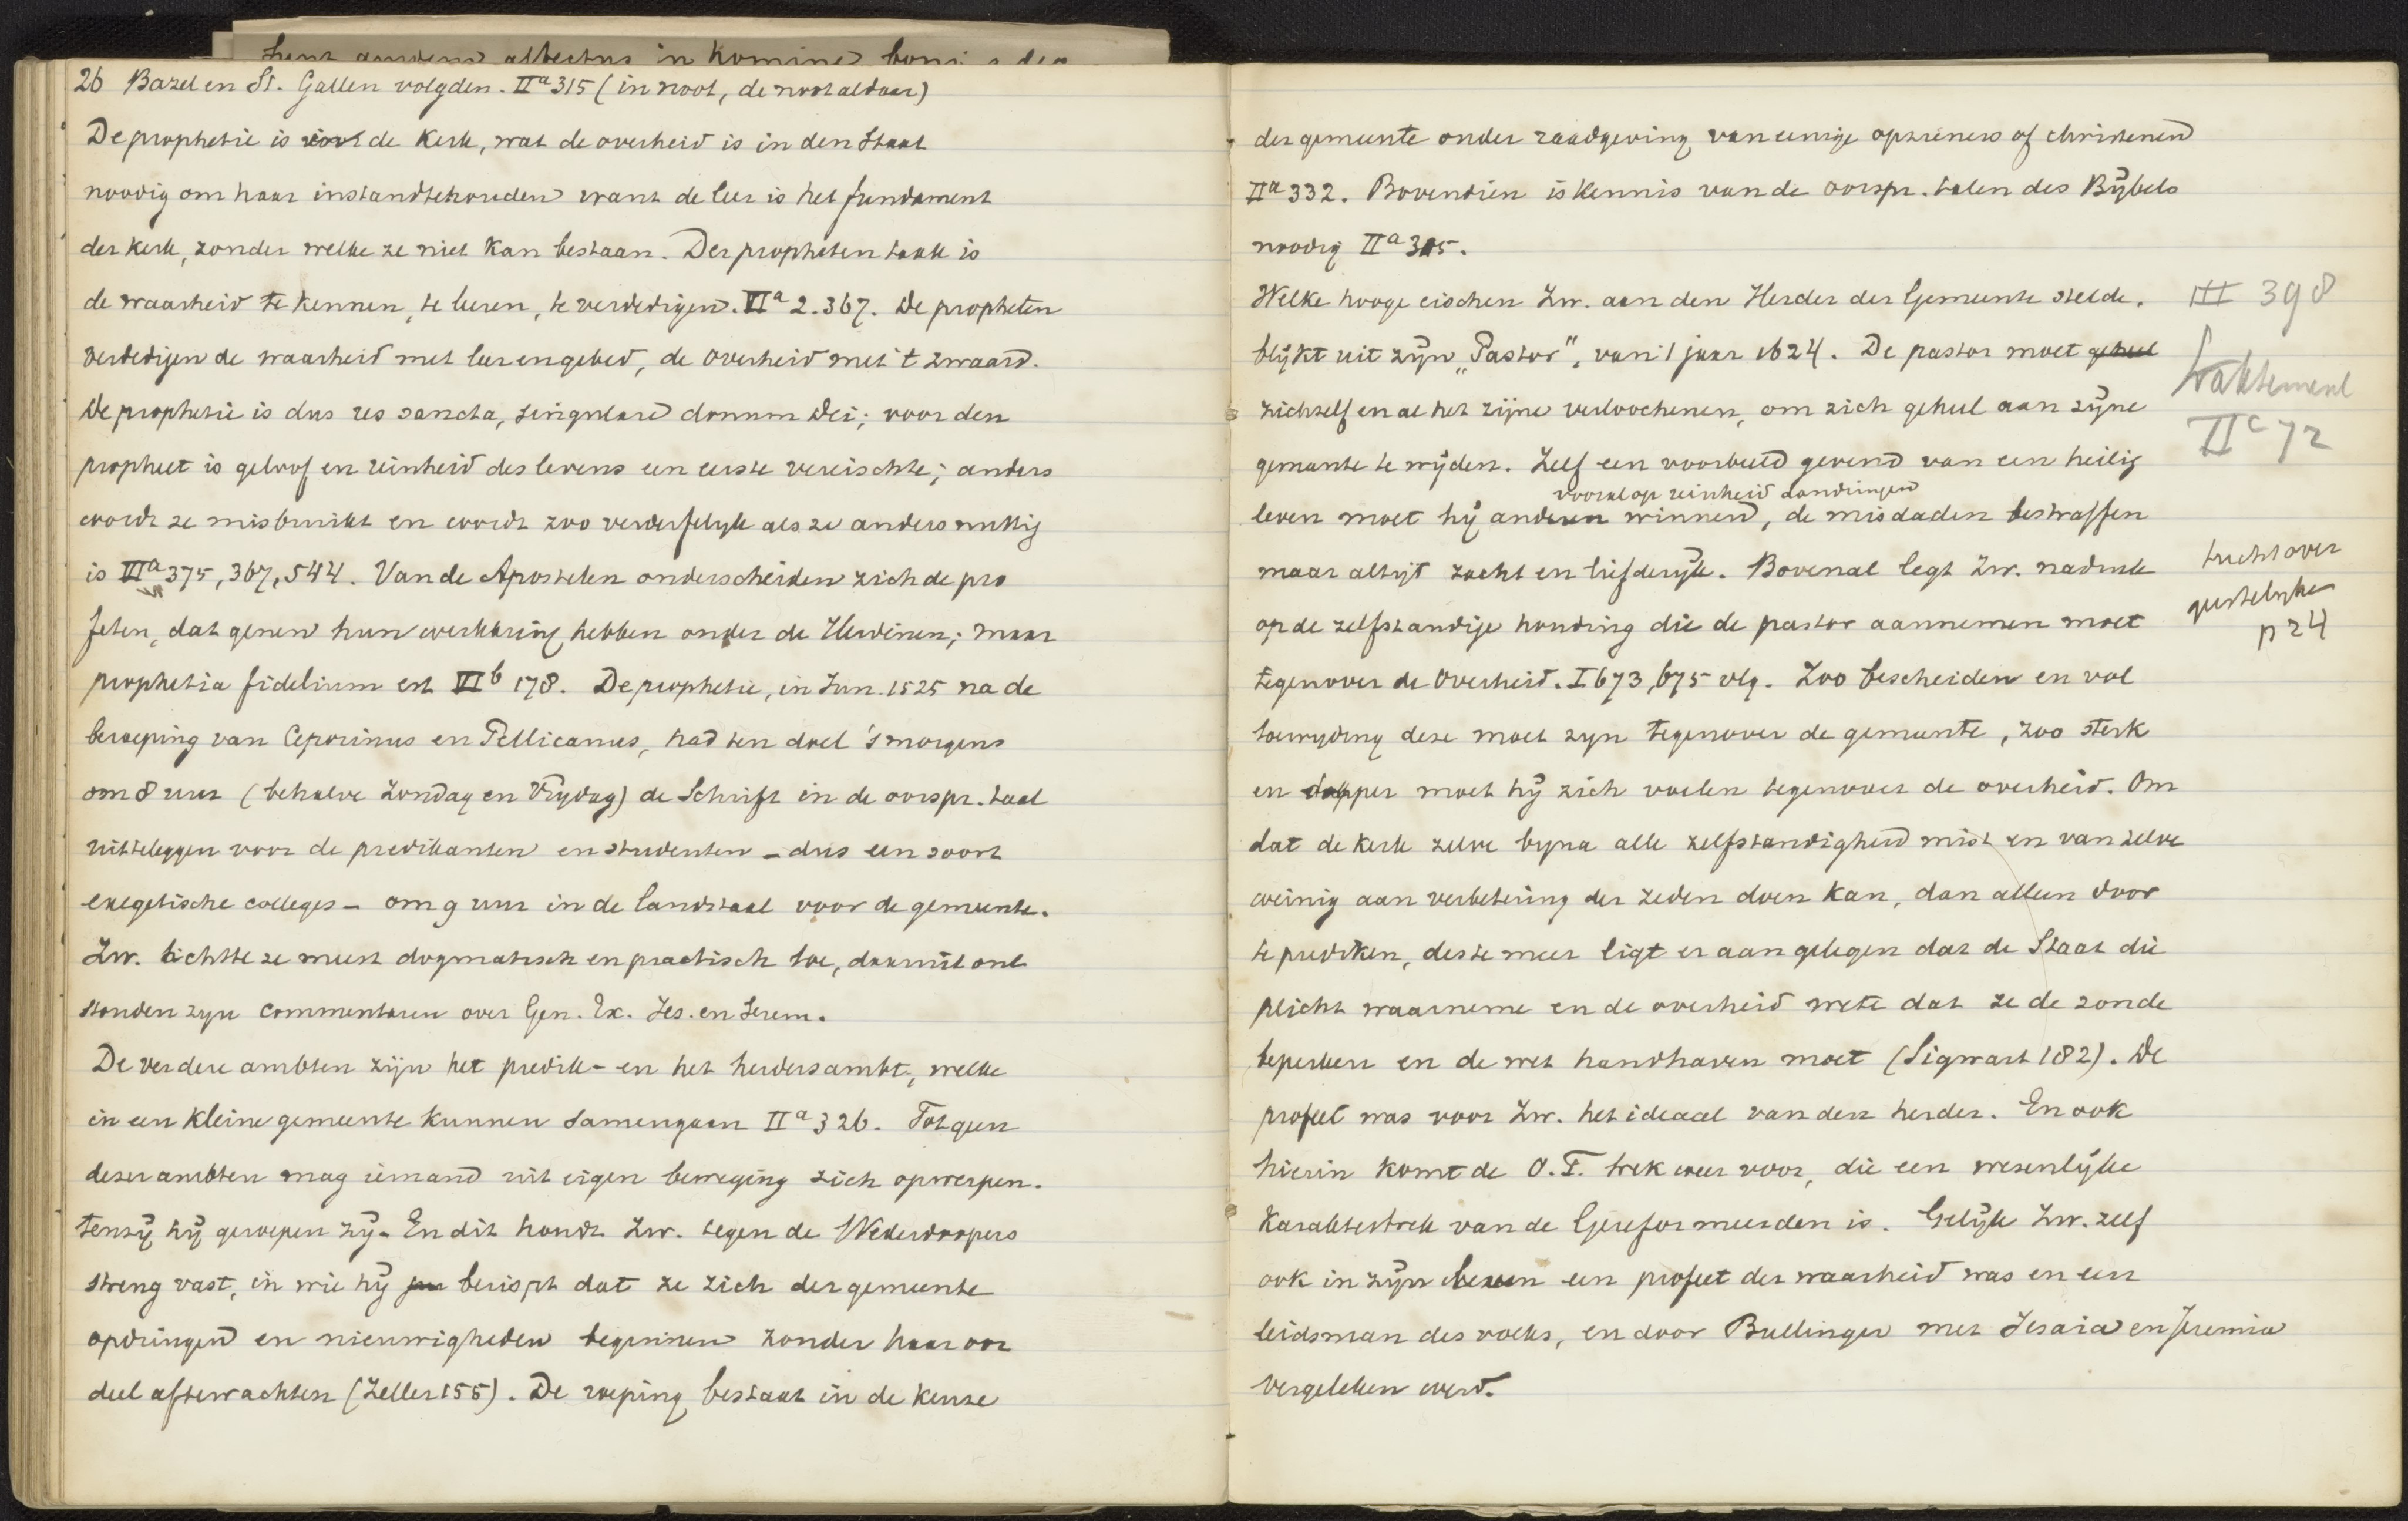 26 Bazel en St. Gallen volgden. IIa 315 (in noot, de noot aldaar)
De prophetie is voor de Kerk, wat de overheid is in den Staat
noodig om haar instandtehouden want de leer is het fundament
der kerk, zonder welke ze niet kan bestaan. Der propheten taak is
de waarheid te kennen, te leeren, te verdedigen. VIa 2. 367. De propheten
verdedigen de waarheid met leer en gebed, de overheid met 't zwaard.
De prophetie is dus res sancta, singulare donum Dei; voor den
propheet is geloof en reinheid des levens een eerste vereischte; anders
wordt ze misbruikt en wordt zoo verderfelyk als ze anders nuttig
is VIa 375, 367, 544. Van de Apostelen onderscheiden zich de pro
feten, dat genen hun werkkring hebben onder de Heidenen; maar
prophetia fidelium est VIb 178. De prophetie, in Jun. 1525 na de
beroeping van Ceporinus en Pellicanus, had ten doel 's morgens
om 8 uur (behalve Zondag en Vrydag) de Schrift in de oorspr. taal
uitteleggen voor de predikanten en studenten – dus een soort
exegetische colleges – om 9 uur in de landstaal voor de gemeente.
Zw. lichtte ze meest dogmatisch en practisch toe, daaruit ont
stonden zyn commentaren over Gen. Ex. Jes. en Jerem.
De verdere ambten zijn het predik- en het herdersambt, welke
in een kleine gemeente kunnen samengaan IIa 326. Tot geen
dezer ambten mag iemand uit eigen beweging zich opwerpen.
tenzÿ hÿ geroepen zÿ. En dit houdt Zw. tegen de Wederdoopers
streng vast, in wie hÿ berispt dat ze zich der gemeente
opdringen en nieuwigheden beginnen zonder haar oor
deel aftewachten (Zeller 155). De roeping bestaat in de keuze
der gemeente onder raadgeving van eenige opzieners of christenen
IIa 332. Bovendien is kennis van de oorspr. talen des Bÿbels
noodig IIa 315.
Welke hooge eischen Zw. aan den Herder der Gemeente stelde.
blÿkt uit zÿn „Pastor", van 't jaar 1624. De pastor moet geheel
zichzelf en al het zijne verloochenen, om zich geheel aan zÿne
gemeente te wÿden. Zelf een voorbeeld gevend van een heilig
vooral op reinheid aandringen
leven moet hÿ anderen winnen, de misdaden bestraffen
maar altijt zacht en liefderÿk. Bovenal legt Zw. nadruk
op de zelfstandige houding die de pastor aannemen moet
tegenover de Overheid. I 673, 675 vlg. Zoo bescheiden en vol
toewyding deze moet zyn tegenover de gemeente, zoo sterk
en dapper moet hÿ zich voelen tegenover de overheid. Om
dat de kerk zelve byna alle zelfstandigheid mist en van zelve
weinig aan verbetering der zeden doen kan, dan alleen door
te prediken, des te meer ligt er aan gelegen dat de Staat die
plicht waarneme en de overheid wete dat ze de zonde
beperken en de wet handhaven moet (Sigwart 182). De
profeet was voor Zw. het ideaal van den herder. En ook
hierin komt de O.T. trek weer voor, die een wezenlÿke
Karaktertrek van de Gereformeerden is. Gelÿk Zw. zelf
ook in zÿn leven een profeet der waarheid was en een
leidsman des volks, en door Bullinger met Jesaia en Jeremia
vergeleken werd.
III 398
Traktement
IIc 72
tucht over
geestelyken
p 24